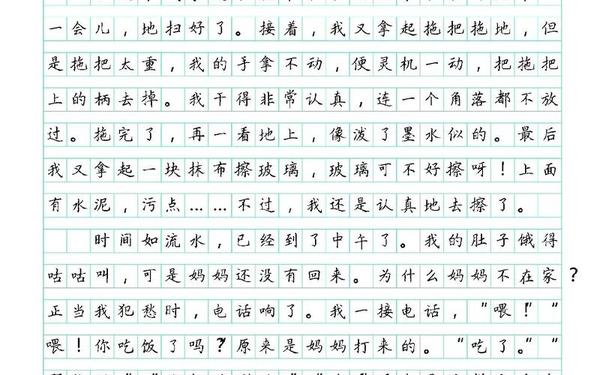 一会儿，地扫好了。接着，我又拿起拖把拖地，但
是拖把太重，我的手拿不动，便灵机一动，把拖把
上的柄去掉。我干得非常认真，连一个角落都不放
过。拖完了，再一看地上，像泼了墨水似的。最后
我又拿起一块抹布擦玻璃，玻璃可不好擦呀！上面
有水泥，污点……不过，我还是认真地去擦了。
时间如流水，已经到了中午了。我的肚子饿得
咕咕叫，可是妈妈还没有回来。为什么妈妈不在家？
正当我犯愁时，电话响了。我一接电话，“喂！”“
喂！你吃饭了吗？”原来是妈妈打来的。“吃了。”“